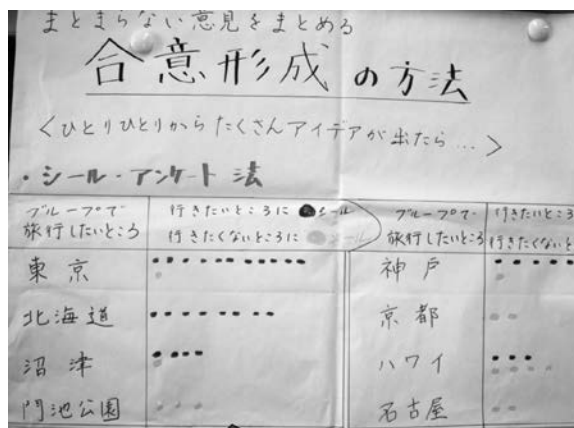 まとまらない意見をまとめる
合意形成の方法
<ひとりひとりからたくさんアイデアが出たら…>
・シール・アンケート法
グループで
旅行したいところ
行きたいところに●シール
行きたくないところに●シール
東京
北海道
沼津
門池公園
グループで
旅行したいところ
行きたいところ
行きたくないと
神戸
京都
ハワイ
名古屋